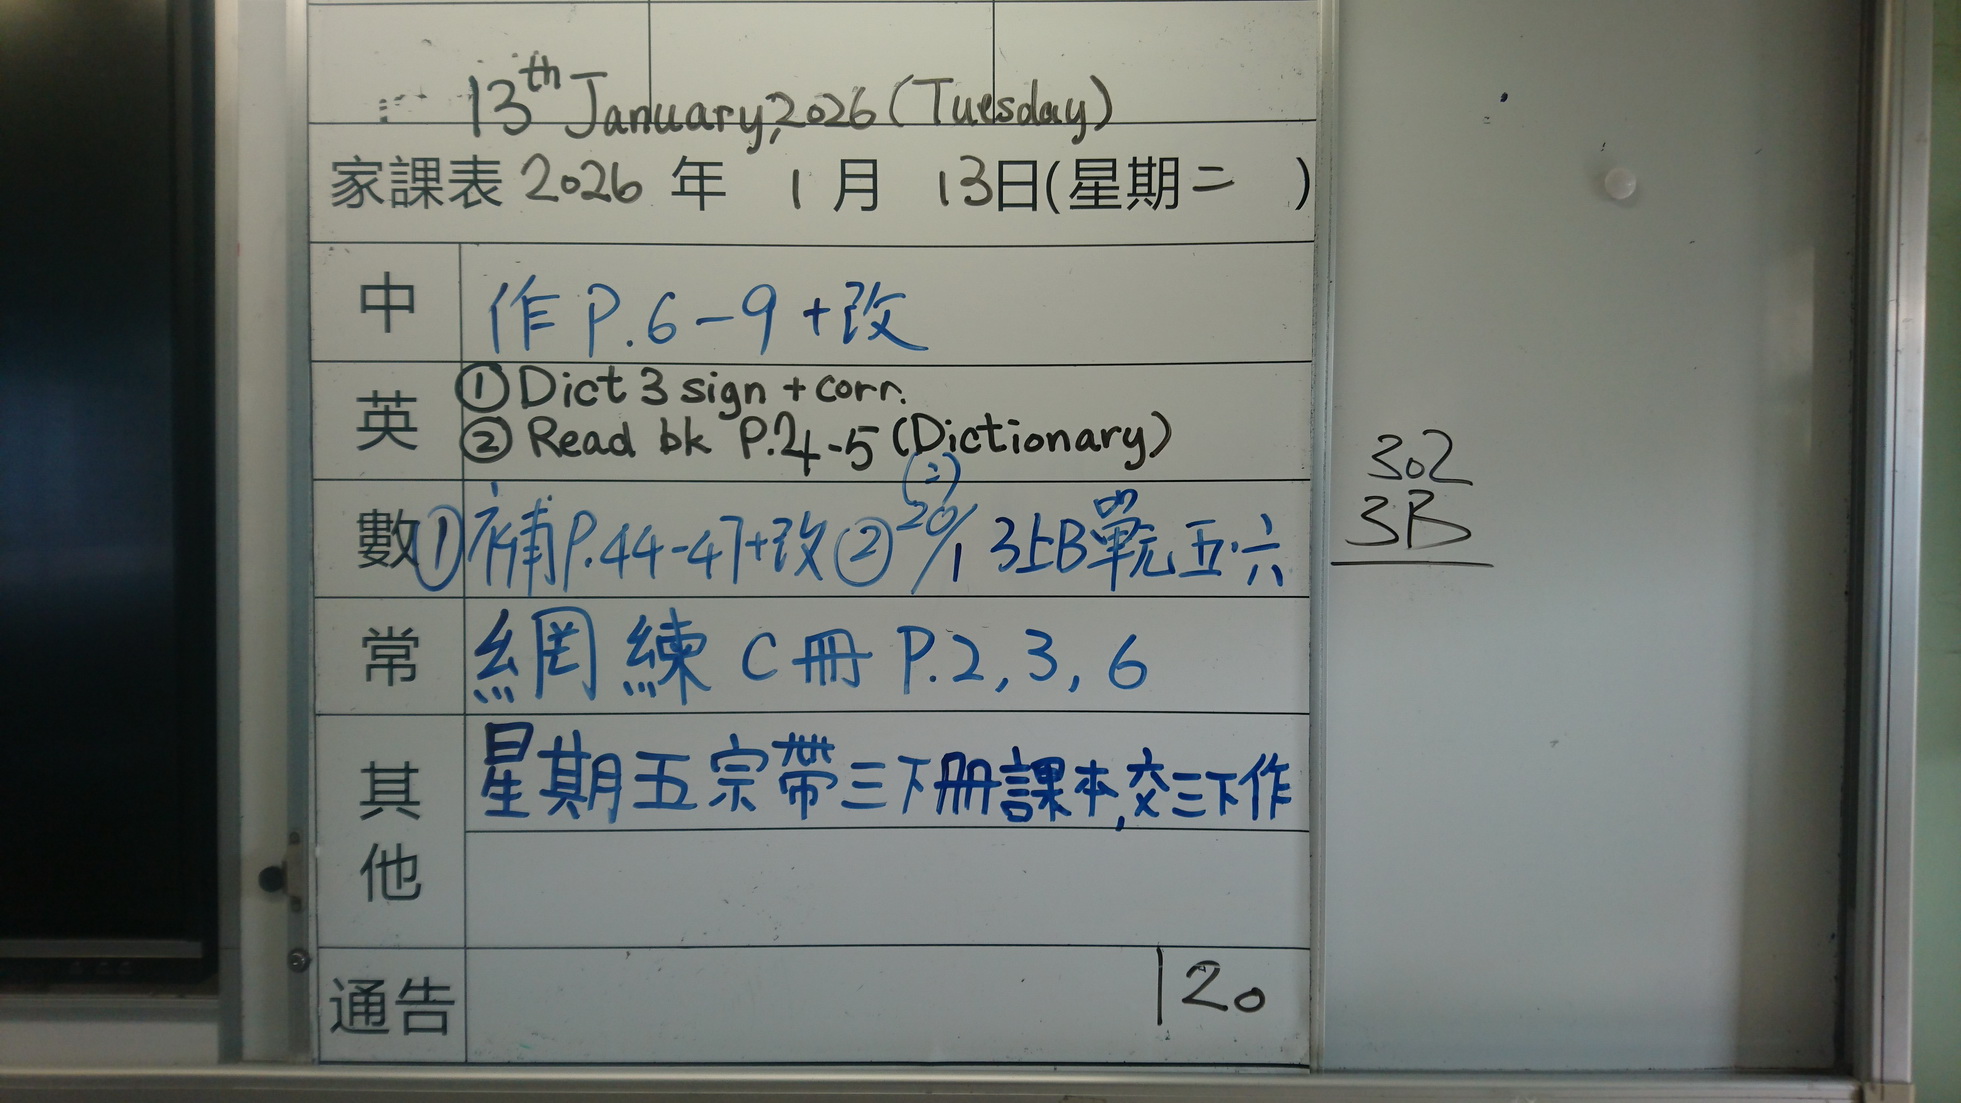 13th January, 2026 (Tuesday)
家課表 2026 年 1 月 13日(星期二 )
中 作 P.6-9+改
英 ① Dict 3 sign + corr.
② Read bk P.24-5 (Dictionary)
數 ① 補P.44-47+改 ② 20/1 (二) 3上B單元五.六
常 網練 C冊 P.2,3,6
其他 星期五宗帶三下冊課本,交三下作
通告 120
302
3B